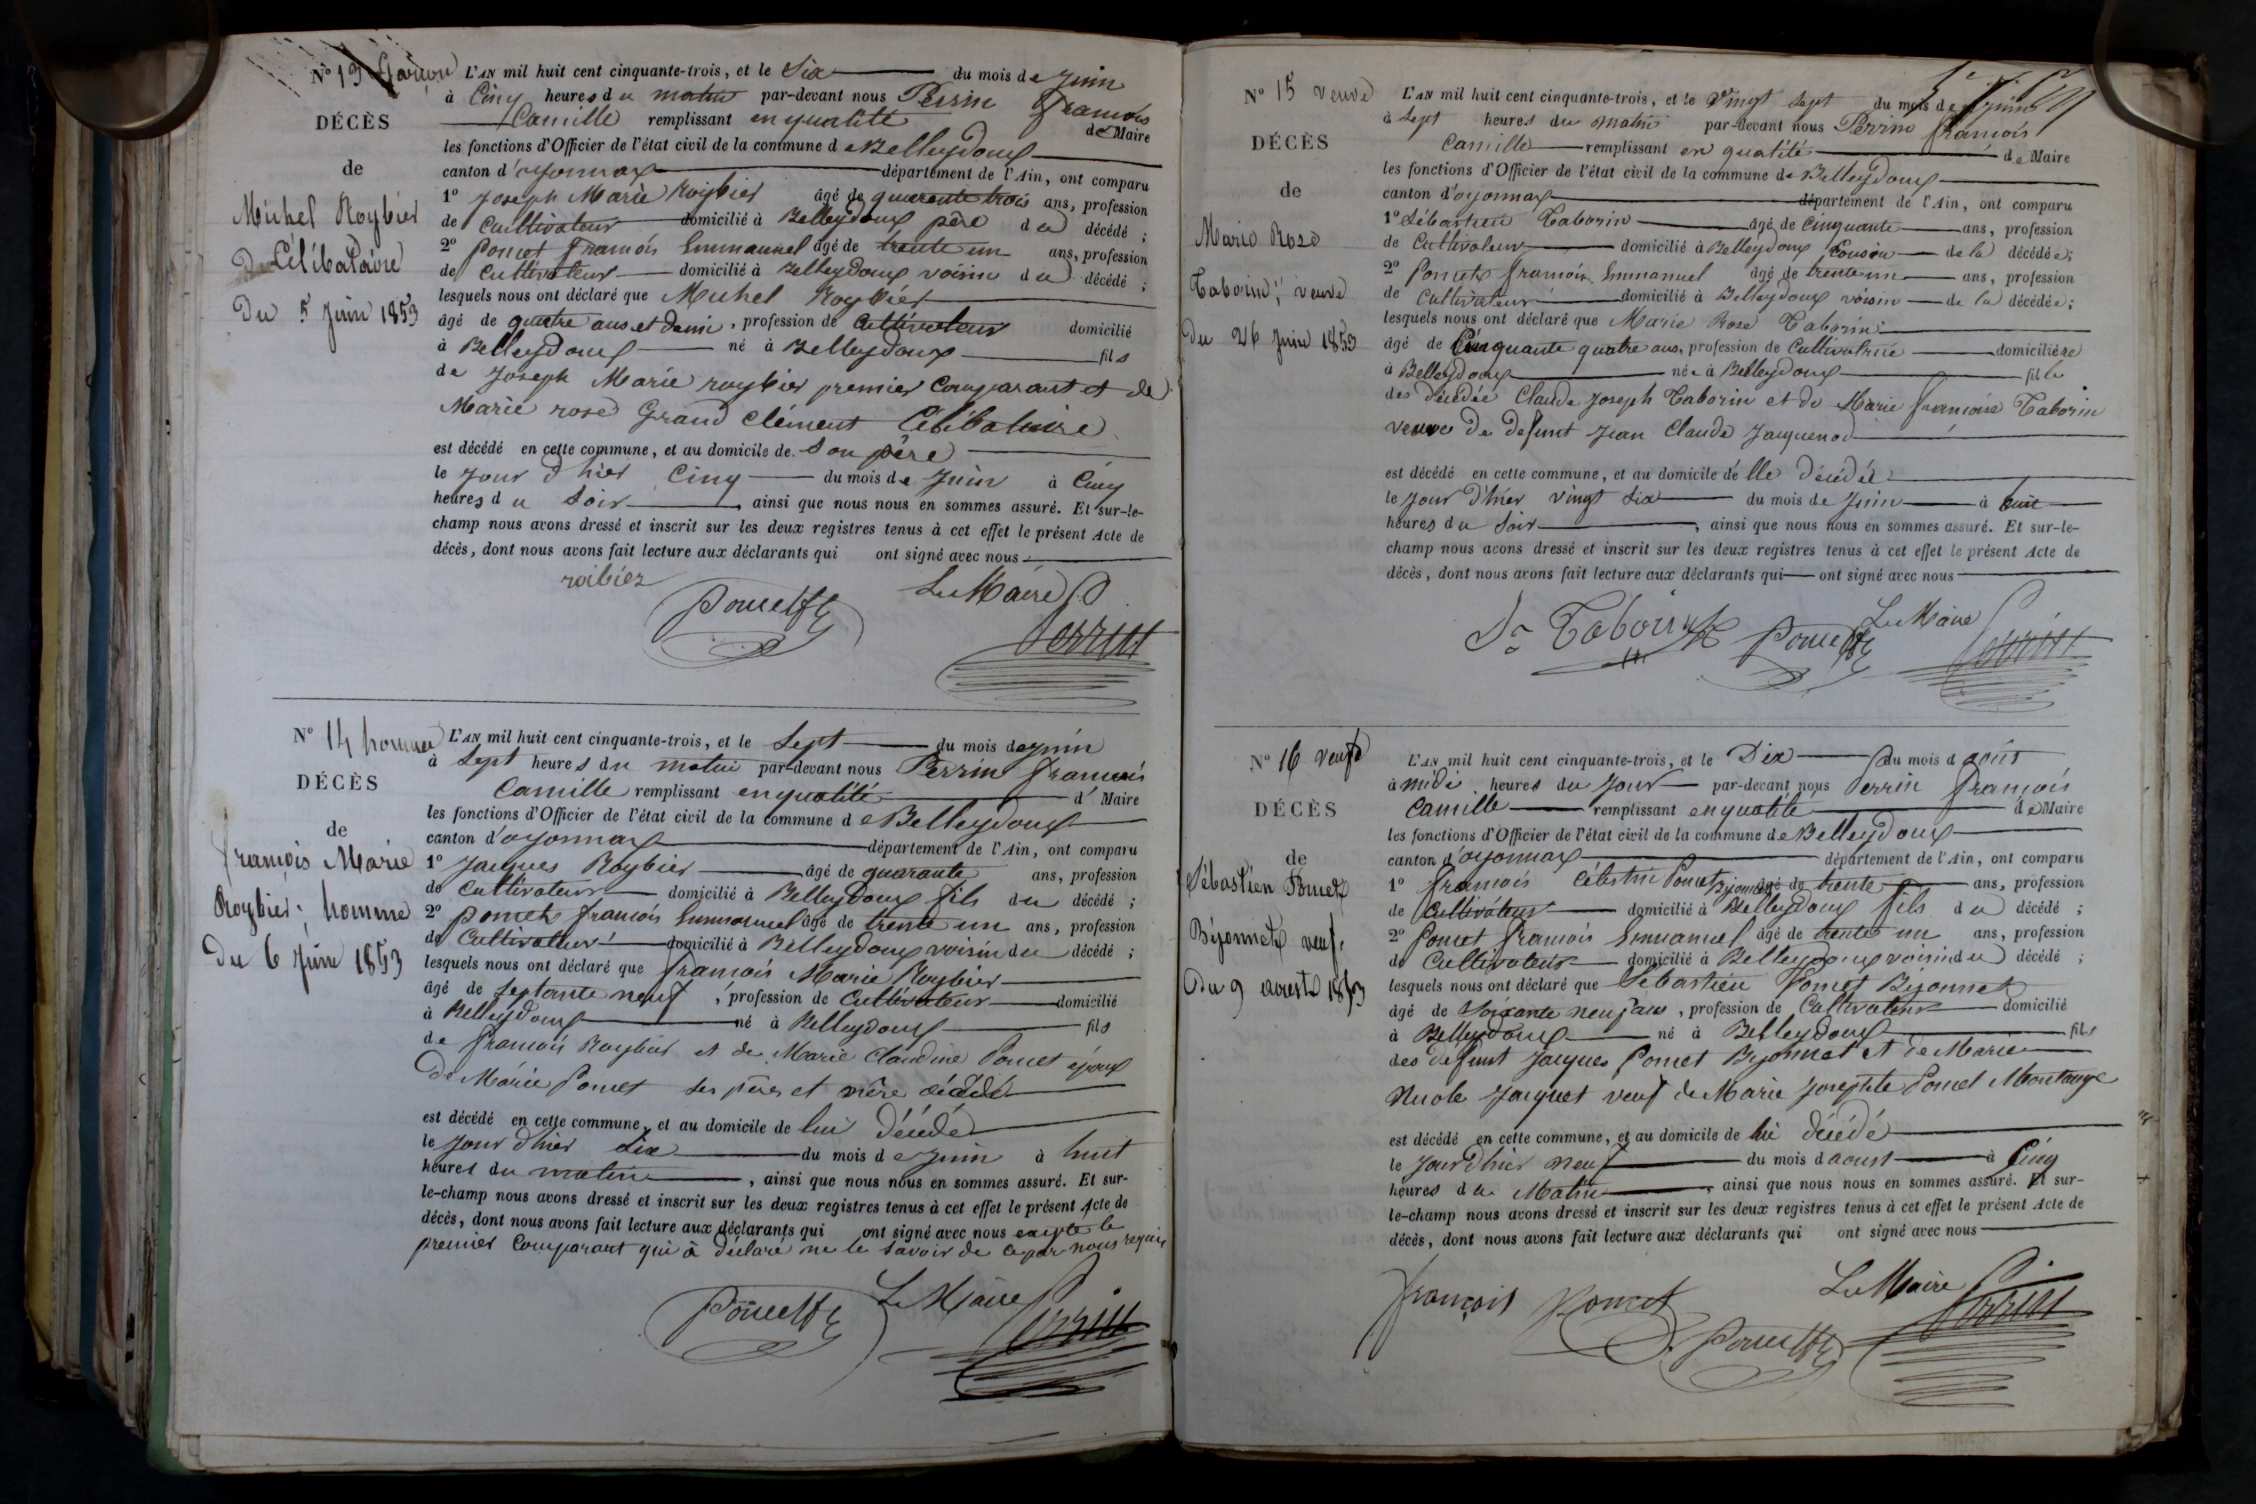 N° 13 Garçon
DÉCÈS
de
Michel Roybier
Célibataire
Du 5 Juin 1853
L'AN mil huit cent cinquante-trois, et le Six du mois de Juin
à Cinq heures du matin par-devant nous Perrin François
Camille remplissant en qualité de Maire
les fonctions d'Officier de l'état civil de la commune de Belleydoux
canton d'oyonnax département de l'Ain, ont comparu
1° Joseph Marie Roybier âgé de quarente trois ans, profession
de Cultivateur domicilié à Belleydoux père du décédé ;
2° Poncet François Emmanuel âgé de trente un ans, profession
de Cultivateur domicilié à Belleydoux voisin du décédé ;
lesquels nous ont déclaré que Michel Roybier
âgé de quatre ans et demi, profession de Cultivateur domicilié
à Belleydoux né à Belleydoux fils
de Joseph Marie roybier premier Comparant et de
Marie rose Grand Clément Célibataire
est décédé en cette commune, et au domicile de Son père
le Jour d'hier Cinq du mois de Juin à Cinq
heures du Soir, ainsi que nous nous en sommes assuré. Et sur-le-
champ nous avons dressé et inscrit sur les deux registres tenus à cet effet le présent Acte de
décès, dont nous avons fait lecture aux déclarants qui ont signé avec nous
roibier
Poncet Le Maire
Perrin
N° 14 homme
DÉCÈS
de
François Marie
Roybier homme
Du 6 Juin 1853
L'AN mil huit cent cinquante-trois, et le Sept du mois de Juin
à Sept heures du matin par-devant nous Perrin François
Camille remplissant en qualité d' Maire
les fonctions d'Officier de l'état civil de la commune de Belleydoux
canton d'oyonnax département de l'Ain, ont comparu
1° Jacques Roybier âgé de quarante ans, profession
de Cultivateur domicilié à Belleydoux fils du décédé ;
2° Poncet François Emmanuel âgé de trente un ans, profession
de Cultivateur domicilié à Belleydoux voisin du décédé ;
lesquels nous ont déclaré que François Marie Roybier
âgé de Septante neuf, profession de Cultivateur domicilié
à Belleydoux né à Belleydoux fils
de François Roybier et de Marie Claudine Poncet époux
De Marie Poncet Ses père et mère décédé
est décédé en cette commune, et au domicile de lui Décédé
le Jour d'hier Six du mois de Juin à huit
heures du matin, ainsi que nous nous en sommes assuré. Et sur-
le-champ nous avons dressé et inscrit sur les deux registres tenus à cet effet le présent Acte de
décès, dont nous avons fait lecture aux déclarants qui ont signé avec nous excepte le
premier Comparant qui à déclaré ne le savoir de ce par nous requis
Poncet Le Maire
Perrin
N° 15 veuve
DÉCÈS
de
Marie Rose
Taborin veuve
Du 26 Juin 1853
L'AN mil huit cent cinquante-trois, et le vingt Sept du mois de Juin
à Sept heures du matin par-devant nous Perrin François
Camille remplissant en qualité de Maire
les fonctions d'Officier de l'état civil de la commune de Belleydoux
canton d'oyonnax département de l'Ain, ont comparu
1° Sébastien Taborin âgé de Cinquante ans, profession
de Cultivateur domicilié à Belleydoux Cousin de la décédée;
2° Poncet François Emmanuel âgé de trente un ans, profession
de Cultivateur domicilié à Belleydoux voisin de la décédée;
lesquels nous ont déclaré que Marie Rose Taborin
âgé de Cinquante quatre ans, profession de Cultivatrice domiciliée
à Belleydoux née à Belleydoux fille
des Décédée Claude Joseph Taborin et de Marie Françoise Taborin
veuve De defunt Jean Claude Jacquenod
est décédé en cette commune, et au domicile de lle Décédée
le Jour d'hier vingt Six du mois de Juin à huit
heures du Soir, ainsi que nous nous en sommes assuré. Et sur-le-
champ nous avons dressé et inscrit sur les deux registres tenus à cet effet le présent Acte de
décès, dont nous avons fait lecture aux déclarants qui ont signé avec nous
Taborin Poncet Le Maire
Perrin
N° 16 veuf
DÉCÈS
de
Sébastien Poncet
Bijonnet veuf
Du 9 aoust 1853
L'AN mil huit cent cinquante-trois, et le Dix du mois d août
à midi heures du Jour par-devant nous Perrin François
Camille remplissant en qualité de Maire
les fonctions d'Officier de l'état civil de la commune de Belleydoux
canton d'oyonnax département de l'Ain, ont comparu
1° François Célestin Poncet Bijonnet âgé de trente ans, profession
de Cultivateur domicilié à Belleydoux fils du décédé ;
2° Poncet François Emmanuel âgé de trente un ans, profession
de Cultivateur domicilié à Belleydoux voisin du décédé ;
lesquels nous ont déclaré que Sébastien Poncet Bijonnet
âgé de Soixante neuf ans, profession de Cultivateur domicilié
à Belleydoux né à Belleydoux fils
des defunt Jacques Poncet Bijonnet et de Marie
Nicole Jacquet veuf de Marie Josephte Poncet Montange
est décédé en cette commune, et au domicile de lui décédé
le Jour d'hier neuf du mois d aoust à Cinq
heures du Matin, ainsi que nous nous en sommes assuré. Et sur-
le-champ nous avons dressé et inscrit sur les deux registres tenus à cet effet le présent Acte de
décès, dont nous avons fait lecture aux déclarants qui ont signé avec nous
françois Poncet Le Maire
Poncet Perrin